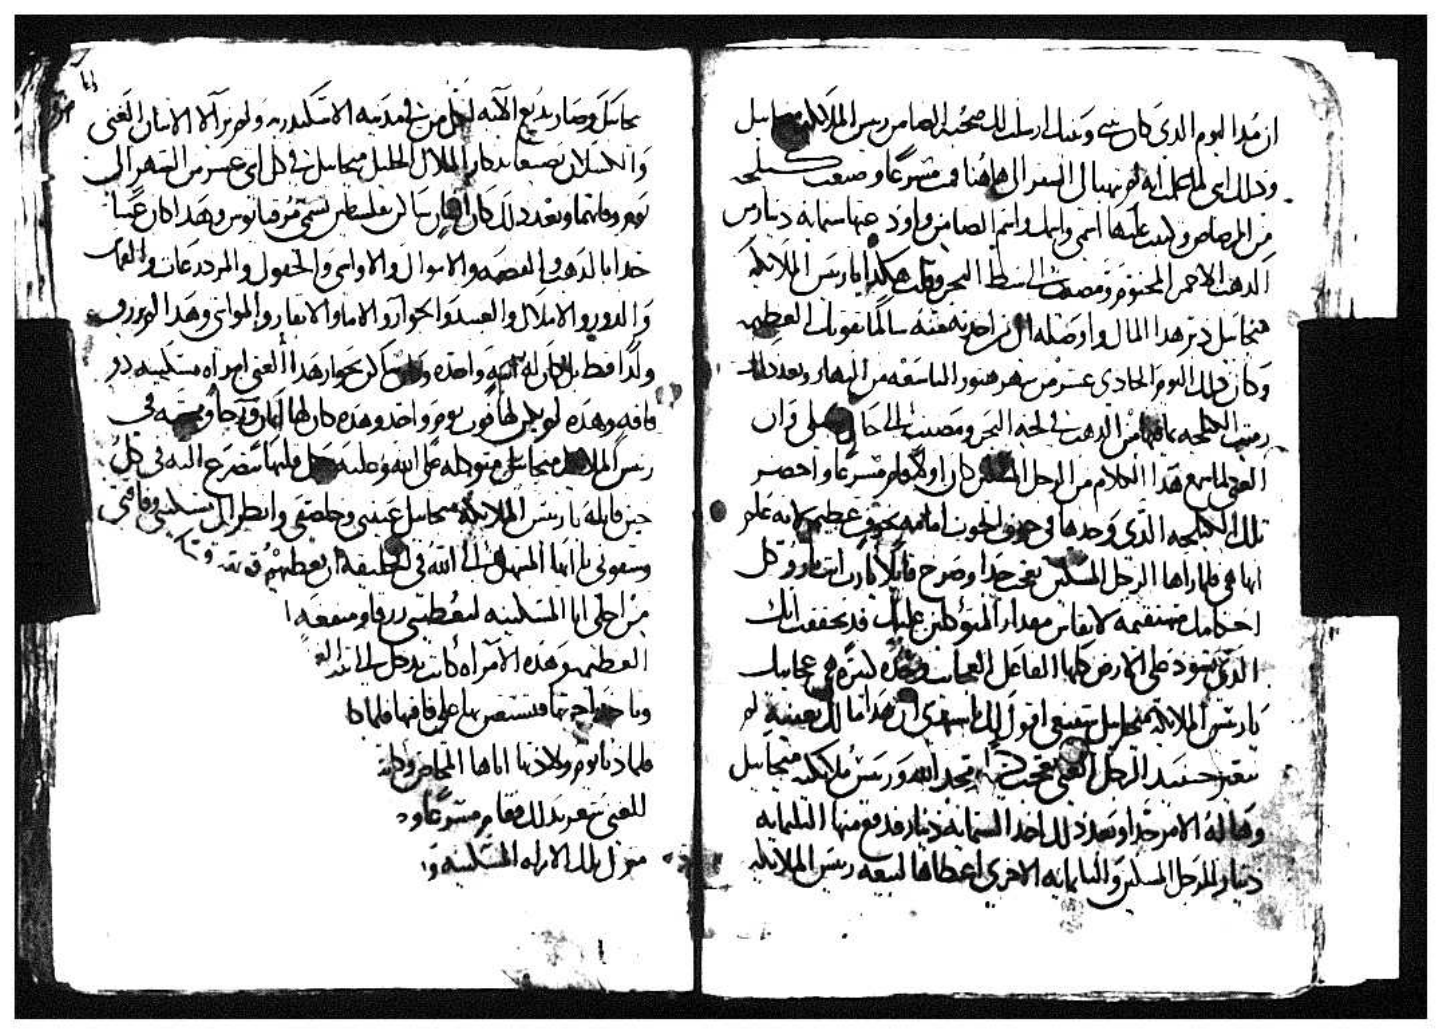 ان هذا اليوم الذي كان بيني وبينك ارسلت لك صحبة الضامن رييس الملايكه ميخاييل
وذلك اني لما علمت انه لم يتهيا لي السفر الى هاهنا قمت مسرعًا وصنعت كليجه
من الرصاص وكتبت عليها اسمي واسمك واسم الضامن واودعتها ستمايه دينار من
الذهب الاحمر المختوم ومضيت الى شط البحر وقلت هكذا يا ريس الملايكه
ميخاييل دبر هذا المال واوصله الى براحديه هينه سالمًا بقوتك العظيمه
وكان ذلك اليوم الحادي عشر من شهر هتور التاسعه من النهار وبعد ذلك
رميت الكليجه بما فيها من الذهب في لجه البحر ومضيت الى حال
الغني لما سمع هذا الكلام من الرجل المسكين كان اولا قام مسرعًا واحضر
تلك الكليجه الذي وجدها في جوف الحوت امامه بخوف عظيم لانه علم
انها هي فلما راها الرجل المسكين تعجب جدا وصرخ قايلًا يا رب انت بار وكل
احكامك مستقيمه لا يقاس مقدار المتوكلين عليك قد تحققت انك
الذي تسود على الارض كلها الفاعل العجايب وحدك كبيره هي عجايبك
يا ريس الملايكه ميخاييل شفيعي اقول لك يا سيدي ان هذا مالك بعينه لم
يتغير حينيد الرجل الغني تعجب كثيرًا ومجد الله وريس ملايكته ميخاييل
وهاله الامر جدا وبعد ذلك اخذ الستمايه دينار فدفع منها الثلثمايه
دينار للرجل المسكين والثلثمايه الاخرى اعطاها لبيعه رييس الملايكه
ميخاييل وصار بديع الآيه لكل من في مدينه الاسكندريه ولم يزالا الاثنان الغني
والمسكين يصنعا تذكار الملاك الجليل ميخاييل في كل اثني عشر من الشهر الى
يوم وفاتهما وبعد ذلك كان انسان ساكن بفلسطين يسمى مرقيانوس وهذا كان غنيًا
جدا بالذهب والفضه والاموال والاواني والحقول والمزدرعات
والدور والاملاك والعبيد والجوار والاما والابقار والمواشي وهذا لم يرزق
ولدًا قط بل كان له ابنه واحده وكان ساكن بجوار هذا الغني امراه مسكينه ذو
فاقه وهذه لم يكن لها قوت يوم واحد وهذه كان لها ايمان ورجا ومحبه في
رييس الملايكه ميخاييل متوكله على الله وطلبه من كل قلبها تتضرع اليه في كل
حين قايله يا رييس الملايكه ميخاييل عينني وخلصني وانظر الى مسكنتي وفاقتي
وشفوني يا ايها المتهل الى الله في الخليقه ان يعطيهم قوته
من اجلي انا المسكينه ليعطيني رزقًا ومنفعه
العظيمه وهذه الامراه كانت تدخل الى
وبا
فلما دنا يوم ولادتها اتاها المخاض وكانت
للغني شعر بذلك فقام مسرعًا
منزل تلك الامراه المسكينه